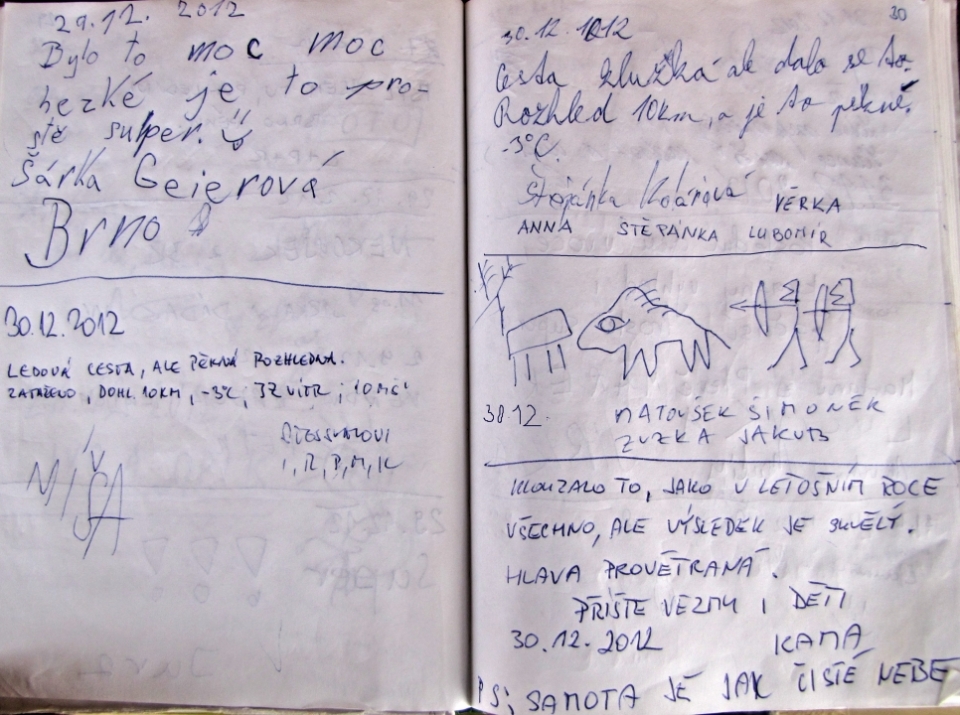 29.12. 2012
Bylo to moc moc
hezké je to pro-
stě super.
Šárka Geierová
Brno
30.12.2012
LEDOVÁ CESTA, ALE PĚKNÁ ROZHLEDNA.
ZATAŽENO, DOHL. 10KM, -3°C, JZ VÍTR, 10 M/S
I, R, P, M, K
MÍŠA
30
30.12.2012
Cesta kluzká ale dalo se to.
Rozhled 10km, a je to pěkné.
-3°C.
Štěpánka VĚRKA
ANNA ŠTĚPÁNKA LUBOMÍR
30 12. MATOUŠEK ŠIMONEK
ZUZKA JAKUB
KLOUZALO TO, JAKO V LETOŠNÍM ROCE
VŠECHNO, ALE VÝSLEDEK JE SKVĚLÝ.
HLAVA PROVĚTRANÁ.
PŘÍŠTĚ VEZMU I DĚTI
30.12.2012 KAMA
PS; SAMOTA JE JAK ČISTÉ NEBE